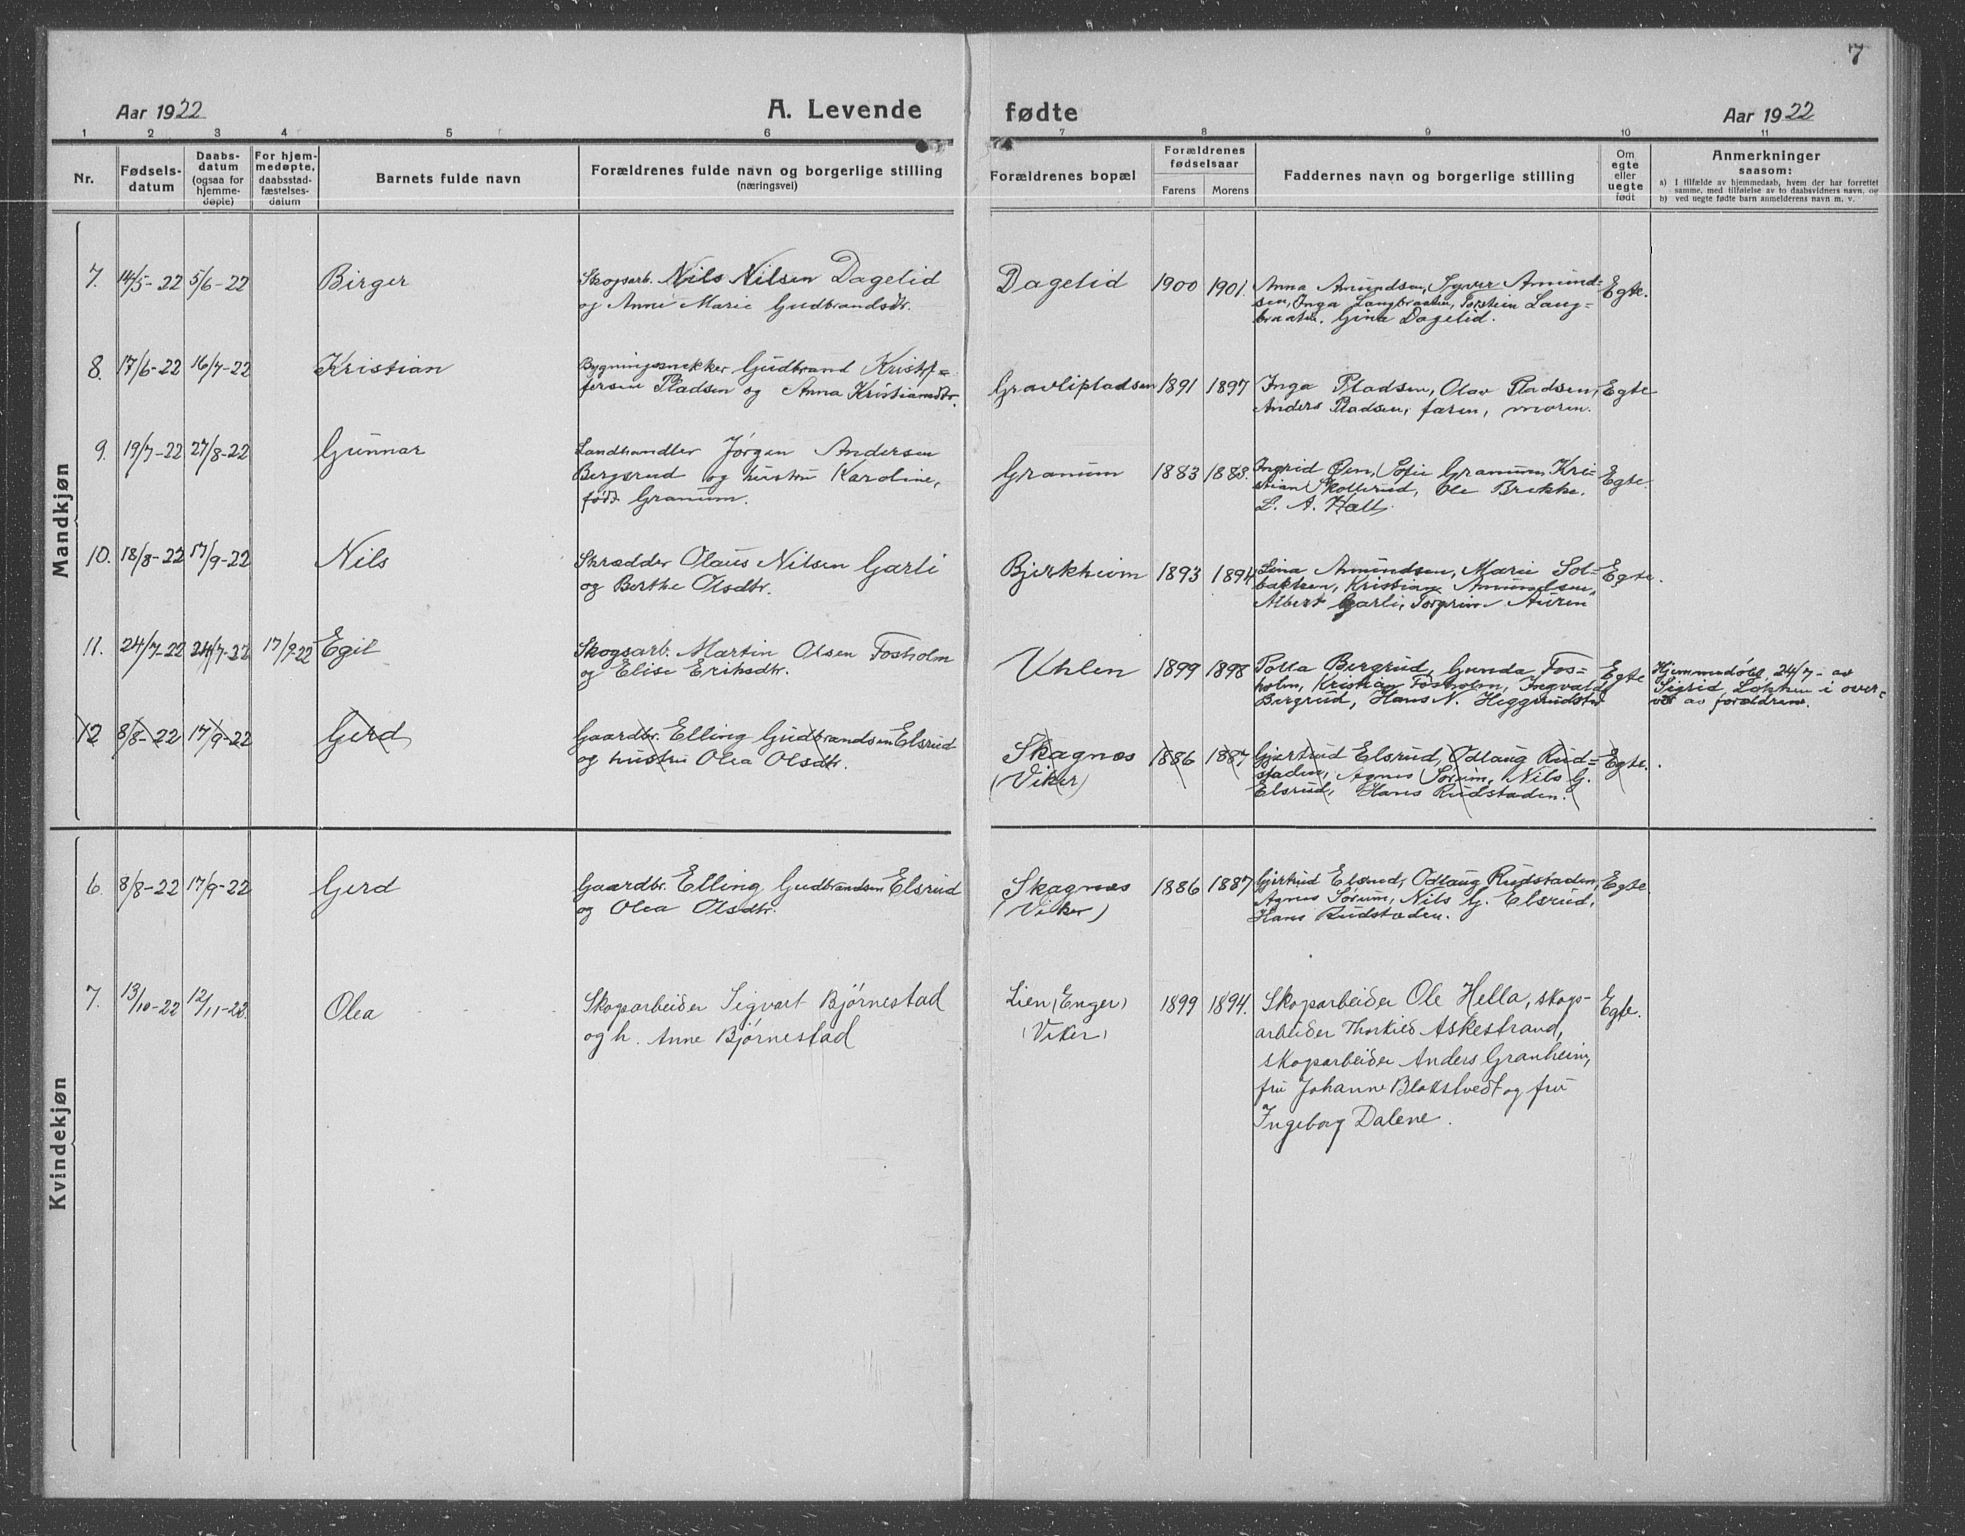 7
Aar 1922 A. Levende fødte Aar 1922
1 2 3 4 5 6 7 8 9 10 11
Nr. Fødsels-datum Daabs-datum (ogsaa for hjemme-døpte) For hjem-medøpte, daabsstad-fæstelses-datum Barnets fulde navn Forældrenes fulde navn og borgerlige stilling (næringsvei) Forældrenes bopæl Forældrenes fødselsaar Farens Morens Faddernes navn og borgerlige stilling Om egte eller uegte født Anmerkninger saasom:
a) I tilfælde av hjemmedaab, hvem der har forrettet
samme, med tilføielse av to daabsvidners navn, og
b) ved uegte fødte barn anmelderens navn m. v.
Mandkjøn
7. 14/5-22 5/6-22 Birger Skogsarb. Nils Nilsen Dagelid
og Anne Marie Gudbrandsdtr.
Dagelid 1900 1901. Anna Amundsen, Syver Amund-
sen, Inga Langbraaten, Torstein Lang-
braaten, Gina Dagelid. Egte.
8. 17/6-22 16/7-22 Kristian Bygningssnekker Gudbrand Kristof-
fersen Pladsen og Anna Kristiansdtr.
Gravlipladsen 1891 1897 Inga Pladsen, Olav Pladsen,
Anders Pladsen, faren, moren. Egte
9. 19/7-22 27/8-22 Gunnar Landhandler Jørgen Andersen
Bergsrud og hustru Karoline,
født Granum.
Granum 1883 1888. Ingrid Øen, Sofie Granum, Kri-
stian Skollerud, Ole Brekke.
L. A. Hall. Egte.
10. 18/8-22 17/9-22 Nils Skrædder Olaus Nilsen Garli
og Berthe Olsdtr.
Bjerkheim 1893 1894 Lina Amundsen, Marie Sol-
bakken, Kristian Amundsen,
Albert Garli, Torgrim Auren Egte.
11. 24/7-22 24/7-22 17/9-22 Egil Skogsarb. Martin Olsen Fosholm
og Elise Eriksdtr.
Uhlen 1899 1898 Bergrud, Gunda Fos-
holm, Kristian Fosholm, Ingvald
Bergrud, Hans N. Heggerudstad Egte Hjemmedøbt 24/7 - av
Sigrid Løkken i over-
vær av forældrene.
12 8/8-22 17/9-22 Gerd Gaardbr. Elling Gudbrandsen Elsrud
og hustru Olea Olsdtr.
Skagnæs
(Viker) 1886 1887 Gjertrud Elsrud, Odlaug Rud-
staden, Agnes Sørum, Nils G.
Elsrud, Hans Rudstaden. Egte.
Kvindekjøn
6. 8/8-22 17/9-22 Gerd Gaardbr. Elling Gudbrandsen Elsrud
og Olea Olsdtr.
Skagnæs
(Viker) 1886 1887 Gjertrud Elsrud, Odlaug Rudstaden,
Agnes Sørum, Nils G. Elsrud,
Hans Rudstaden. Egte.
7. 13/10-22 12/11-22. Olea Skogarbeider Sigvart Bjørnestad
og h. Anne Bjørnestad
Lien (Enger)
(Viker) 1899 1894. Skogarbeider Ole Hella, skogs-
arbeider Askestrand,
skogarbeider Anders Granheim,
fru Johanne Blakstvedt og fru
Ingeborg Dalene. Egte.